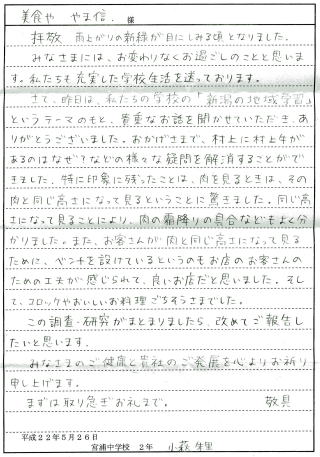 美食や やま信. 様
拝啓 雨上がりの新緑が目にしみる頃となりました。
みなさまには、お変わりなくお過ごしのことと思いま
す。私たちも充実した学校生活を送っております。
さて、昨日は、私たちの学校の「新潟の地域学習」
というテーマのもと、貴重なお話を聞かせていただき、あ
りがとうございました。おかげさまで、村上に村上牛が
あるのはなぜ?などの様々な疑問を解消することがで
きました。特に印象に残ったことは、肉を見るときは、その
肉と同じ高さになって見るということに驚きました。同じ高
さになって見ることにより、肉の霜降りの具合などもよく分
かりました。また、お客さんが肉と同じ高さになって見る
ために、ベンチを設けているというのもお店のお客さんの
ための工夫が感じられて、良いお店だと思いました。そし
て、コロッケやおいしいお料理ごちそうさまでした。
この調査・研究がまとまりましたら、改めてご報告し
たいと思います。
みなさまのご健康と貴社のご発展を心よりお祈り
申し上げます。
まずは取り急ぎお礼まで。 敬具
平成22年5月26日
宮浦中学校 2年 小萩 朱里